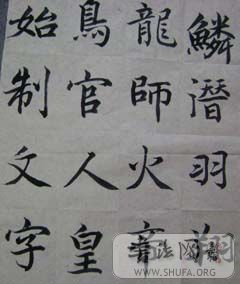 鱗潛羽
龍師火
鳥官人皇
始制文字
WWW.SHUFA.ORG